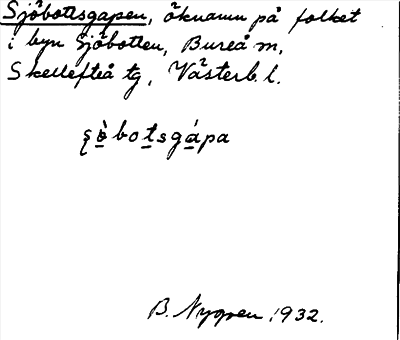 Sjöbottsgapen, öknamn på folket
i byn Sjöbotten, Bureå m,
Skellefteå tg, Västerb. l.
ʂò̱boṯsgá̱pa
B. Nygren 1932.